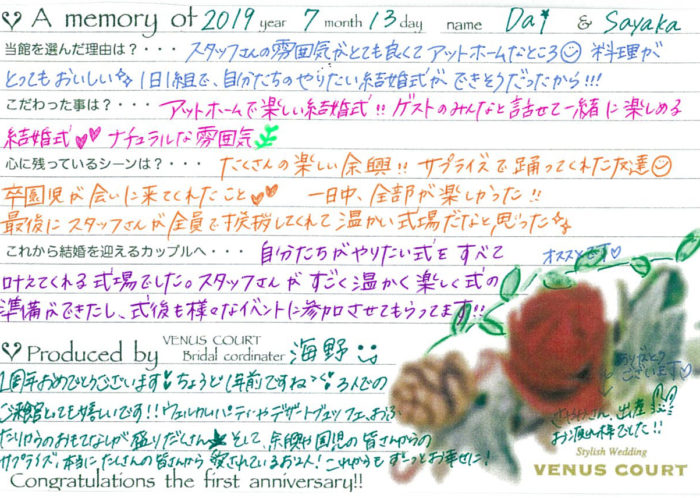 A memory of 2019 year 7 month 13 day name Dai & Sayaka
当館を選んだ理由は？・・・ スタッフさんの雰囲気がとても良くてアットホームなところ☺ 料理が
とってもおいしい 1日1組で、自分たちのやりたい結婚式ができそうだったから!!!
こだわった事は？・・・ アットホームで楽しい結婚式!! ゲストのみんなと話せて一緒に楽しめる
結婚式♡♡ ナチュラルな雰囲気
心に残っているシーンは？・・・ たくさんの楽しい余興!! サプライズで踊ってくれた友達☺
卒園児が会いに来てくれたこと♡♡ 一日中、全部が楽しかった!!
最後にスタッフさんが全員で挨拶してくれて温かい式場だなと思った
これから結婚を迎えるカップルへ・・・ 自分たちがやりたい式をすべて
オススメです♡
叶えてくれる式場でした。スタッフさんがすごく温かく楽しく式の
準備ができたし、式後も様々なイベントに参加させてもらってます!!
Produced by VENUS COURT Bridal cordinater 海野
ありがとうございます♡
1周年おめでとうございます! ちょうど1年前ですね 3人での
ご来館とっても嬉しいです!! ウェルカムパーティやデザートブッフェ、お
たりからのおもてなしが盛りだくさん★ そして、余興や園児の皆さんからの
サプライズ、本当にたくさんの皆さんから愛されているお2人! これからもずーっとお幸せに!
さやかさん、出産
お疲れ様でした!!
Stylish Wedding
VENUS COURT
Congratulations the first anniversary!!